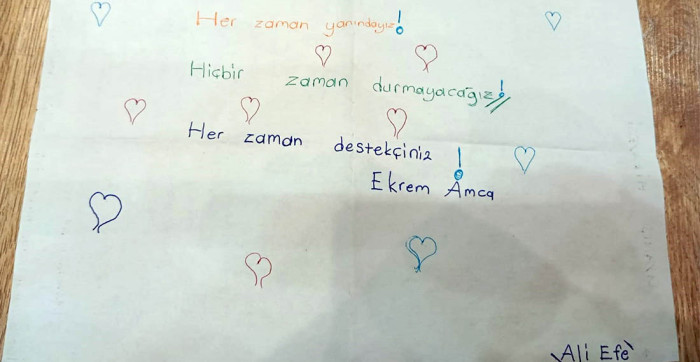 Her zaman yanındayız!
Hiçbir zaman durmayacağız!
Her zaman destekçiniz!
Ekrem Amca
Ali Efe